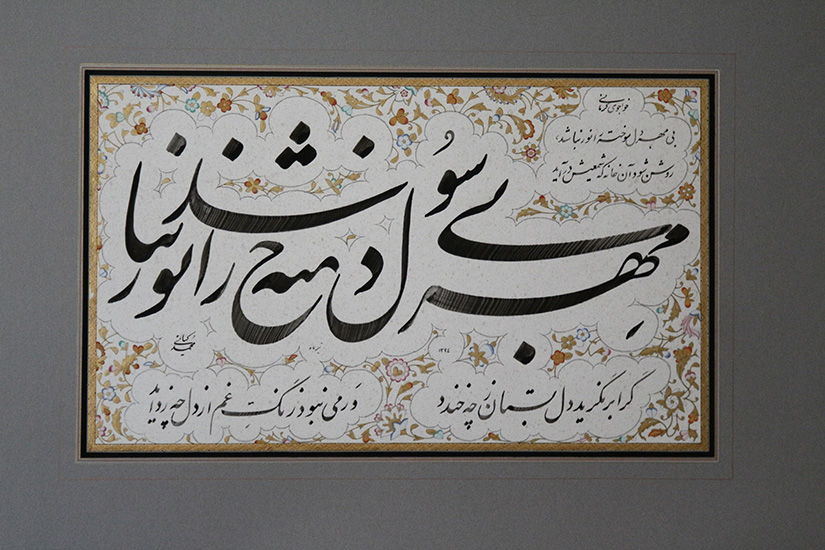 خواجوی کرمانی
بی مهر دل سوخته را نور نباشد
روشن شود آن خانه که شمعیش درآید
بی مهر دل سوخته را نور نباشد
گر ابر نگرید دل بستان ز چه خندد
ور می نبود زنگ غم از دل چه زداید